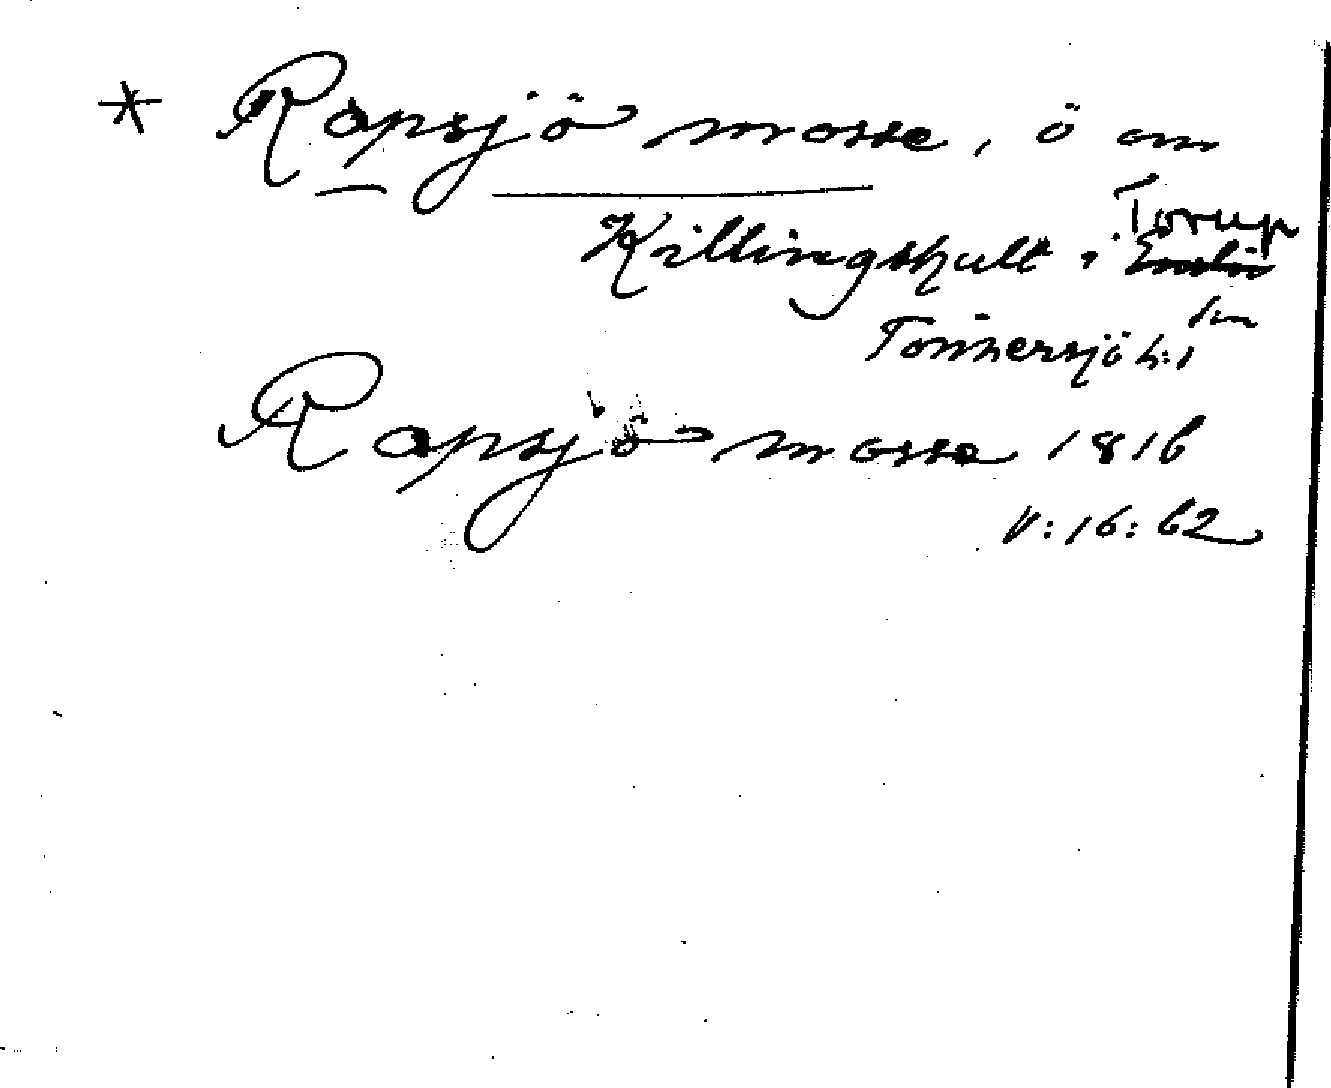 * Rapsjö mosse, ö om
Torup
Killingshult i
sn
Tönnersjö h:d
Rapsjö mosse 1816
V:16:62